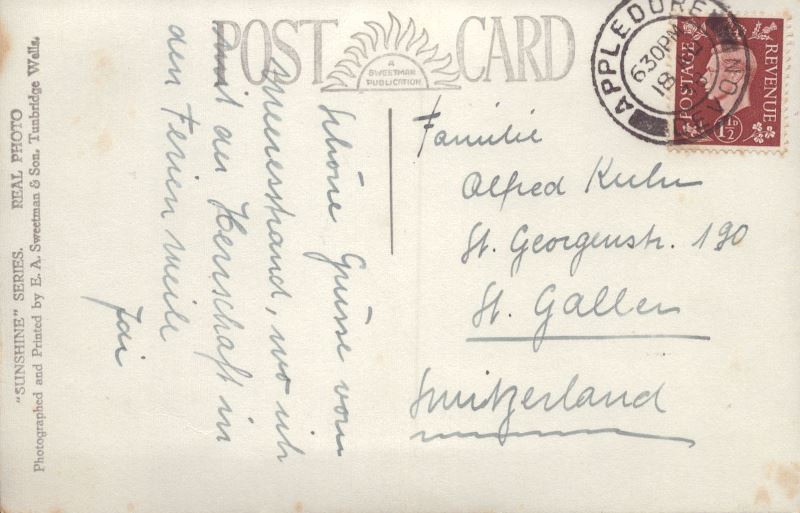 POST CARD
A
SWEETMAN
PUBLICATION
APPLEDORE
630PM
18
DEVON
POSTAGE
REVENUE
1½D
Familie
Alfred Kuhn
St. Georgenstr. 190
St. Gallen
Switzerland
Schöne Grüsse vom
Meeresstrand, wo ich
mit der Herrschaft in
den Ferien weile
"SUNSHINE" SERIES. REAL PHOTO
Photographed and Printed by E. A. Sweetman & Son, Tunbridge Wells.